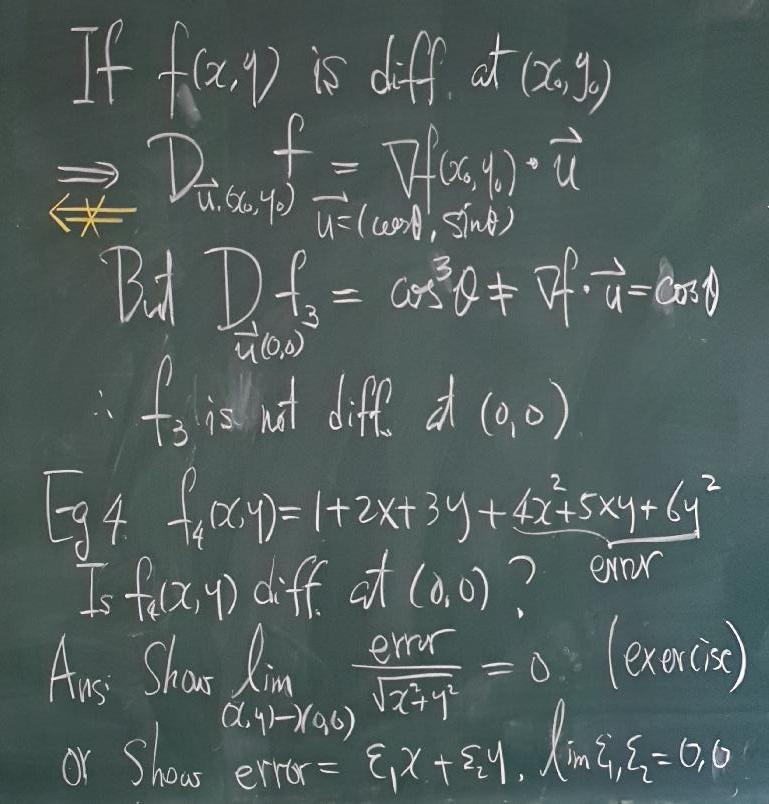 If f(x,y) is diff. at (x₀,y₀)
⇒ D_{u⃗,(x₀,y₀)} f = ∇f(x₀,y₀)·u⃗
⇍ u⃗=(cosθ, sinθ)
But D_{u⃗(0,0)} f₃ = cos³θ ≠ ∇f·u⃗ = cosθ
∴ f₃ is not diff. at (0,0)
Eg 4. f₄(x,y)=1+2x+3y+4x²+5xy+6y²
error
Is f₄(x,y) diff. at (0,0)?
Ans: Show lim_{(x,y)→(0,0)} error/√(x²+y²) = 0. (exercise)
or Show error = ε₁x + ε₂y, lim ε₁,ε₂ = 0,0